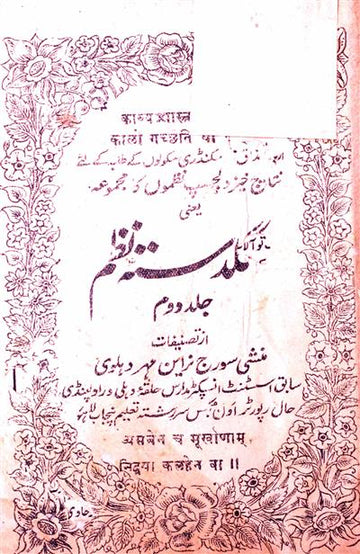 काव्यशास्त्र
कालो गच्छति
سکنڈری سکولوں کے طلب کے لئے
نتائج خیز دلچسپ نظموں کا مجموعہ
یعنی
گلدستہ نظم
جلد دوم
از تصنیفات
منشی سورج نراین مہر دہلوی
سابق اسسٹنٹ انسپکٹر مدارس حلقہ دہلی و راولپنڈی
حال رپورٹر اون بکس سررشتہ تعلیم پنجاب لاہور
च मूर्खाणाम्
निद्रया कलहेन वा ॥